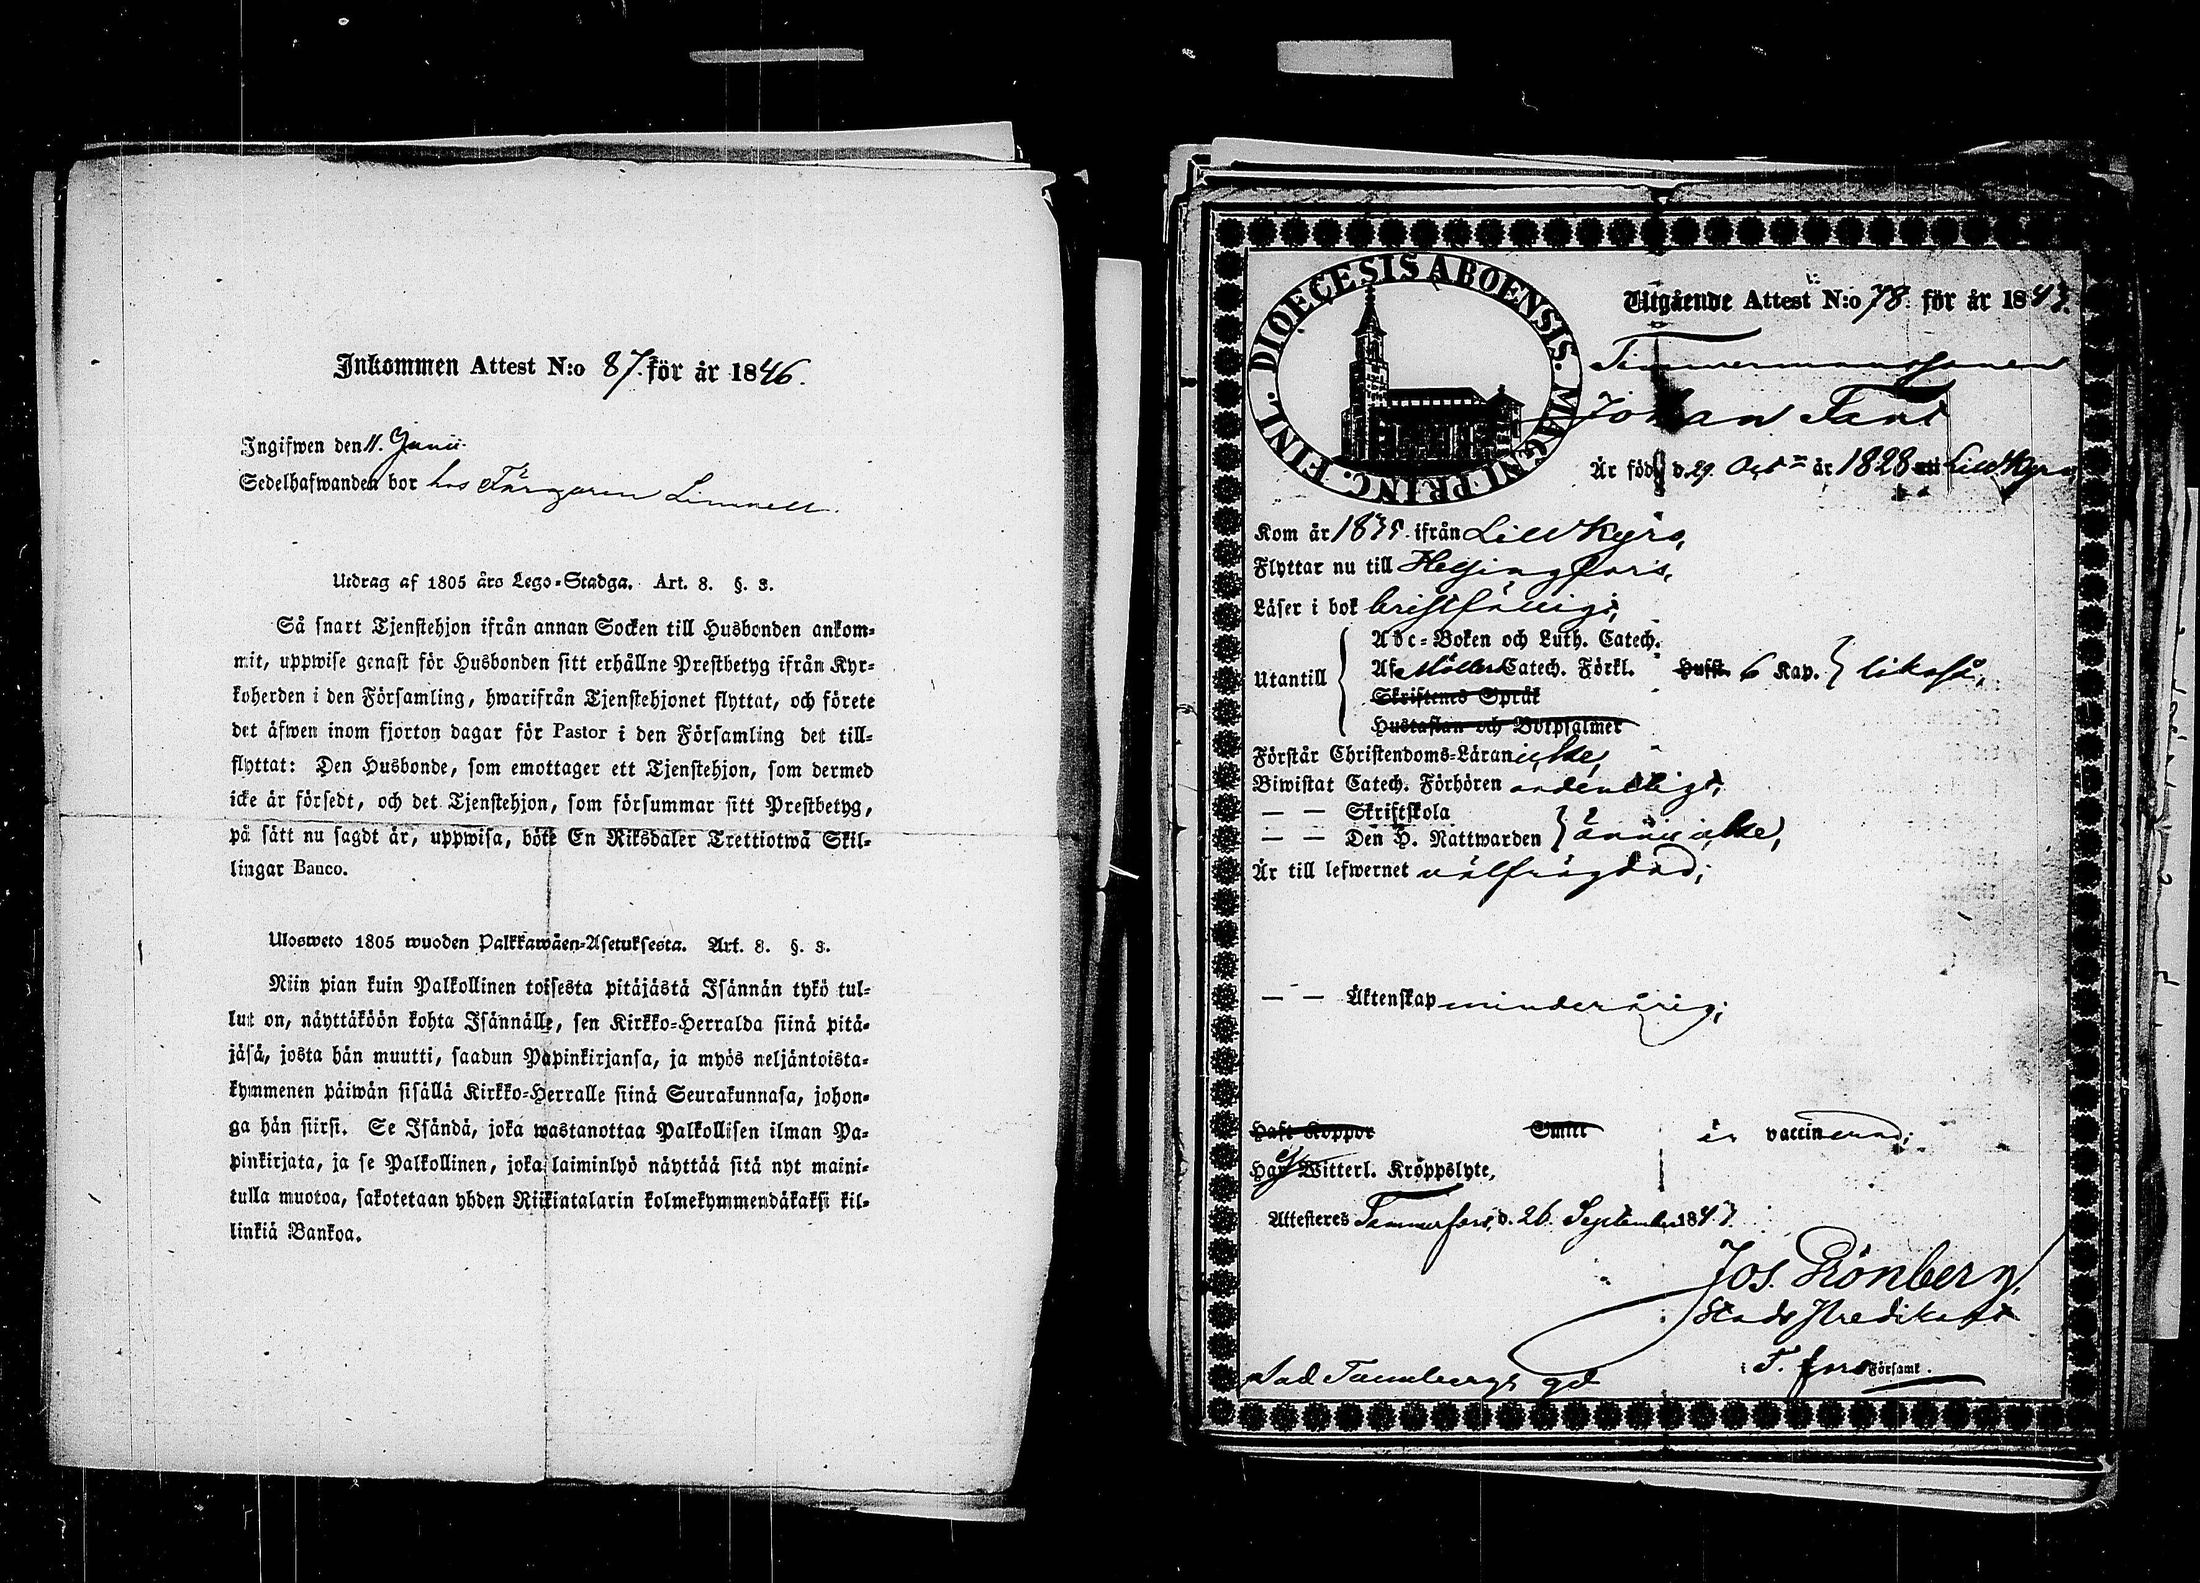 Inkommen Attest N:o 87. för år 1846.
Ingifwen den 11. Junii
Sedelhafwanden bor hos Färgaren Limnell.
Utdrag af 1805 års Lego-Stadga. Art. 8. §. 3.
Så snart Tjenstehjon ifrån annan Socken till Husbonden ankom-
mit, uppwise genast för Husbonden sitt erhållne Prestbetyg ifrån Kyr-
koherden i den Församling, hwarifrån Tjenstehjonet flyttat, och förete
det äfwen inom fjorton dagar för Pastor i den Församling det till-
flyttat: Den Husbonde, som emottager ett Tjenstehjon, som dermed
icke är försedt, och det Tjenstehjon, som försummar sitt Prestbetyg,
på sätt nu sagdt är, uppwisa, böte En Riksdaler Trettiotwå Skil-
lingar Banco.
Ulosweto 1805 wuoden Palkkawäen-Asetuksesta. Art. 8. §. 3.
Niin pian kuin Palkollinen toisesta pitäjästä Isännän tykö tul-
lut on, näyttäköön kohta Isännälle, sen Kirkko-Herralda siinä pitä-
jäsä, josta hän muutti, saadun Papinkirjansa, ja myös neljäntoista-
kymmenen päiwän sisällä Kirkko-Herralle siinä Seurakunnasa, johon-
ga hän siirsi. Se Isändä, joka wastanottaa Palkollisen ilman Pa-
pinkirjata, ja se Palkollinen, joka laiminlyö näyttää sitä nyt maini-
tulla muotoa, sakotetaan yhden Riikintalarin kolmekymmendäkaksi kil-
linkiä Bankoa.
DIOECESIS ABOENSIS. MAGNI PRINC. FINL.
Utgående Attest N:o 78. för år 1847.
Timmermanssonen
Johan Fant
Är född d. 29. Oct. är 1828 uti Lillkyro
Kom år 1835. ifrån Lillkyro,
Flyttar nu till Helsingfors,
Läser i bok bristfälligt,
Utantill
Abc-Boken och Luth. Catech.
Af Möllers Catech. Förkl. Hufst. 6 Kap. likaså,
Skriftenes Språk
Hustaflan och Botpsalmer
Förstår Christendoms-Läran icke,
Biwistat Catech. Förhören ordentligt,
— — Skriftskola
— — Den H. Nattwarden ännu icke,
Är till lefwernet välfrägdad;
— — Äktenskap minderårig;
Haft Koppor Smitt är vaccinerad;
Har ej Witterl. Kroppslyte,
Attesteres Tammerfors, d. 26. September 1847
Jos. Grönberg,
Stads Predikant
i T. fors Församl.